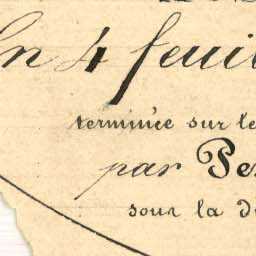 En 4 feuil
terminée sur le
par Pe
sous la d